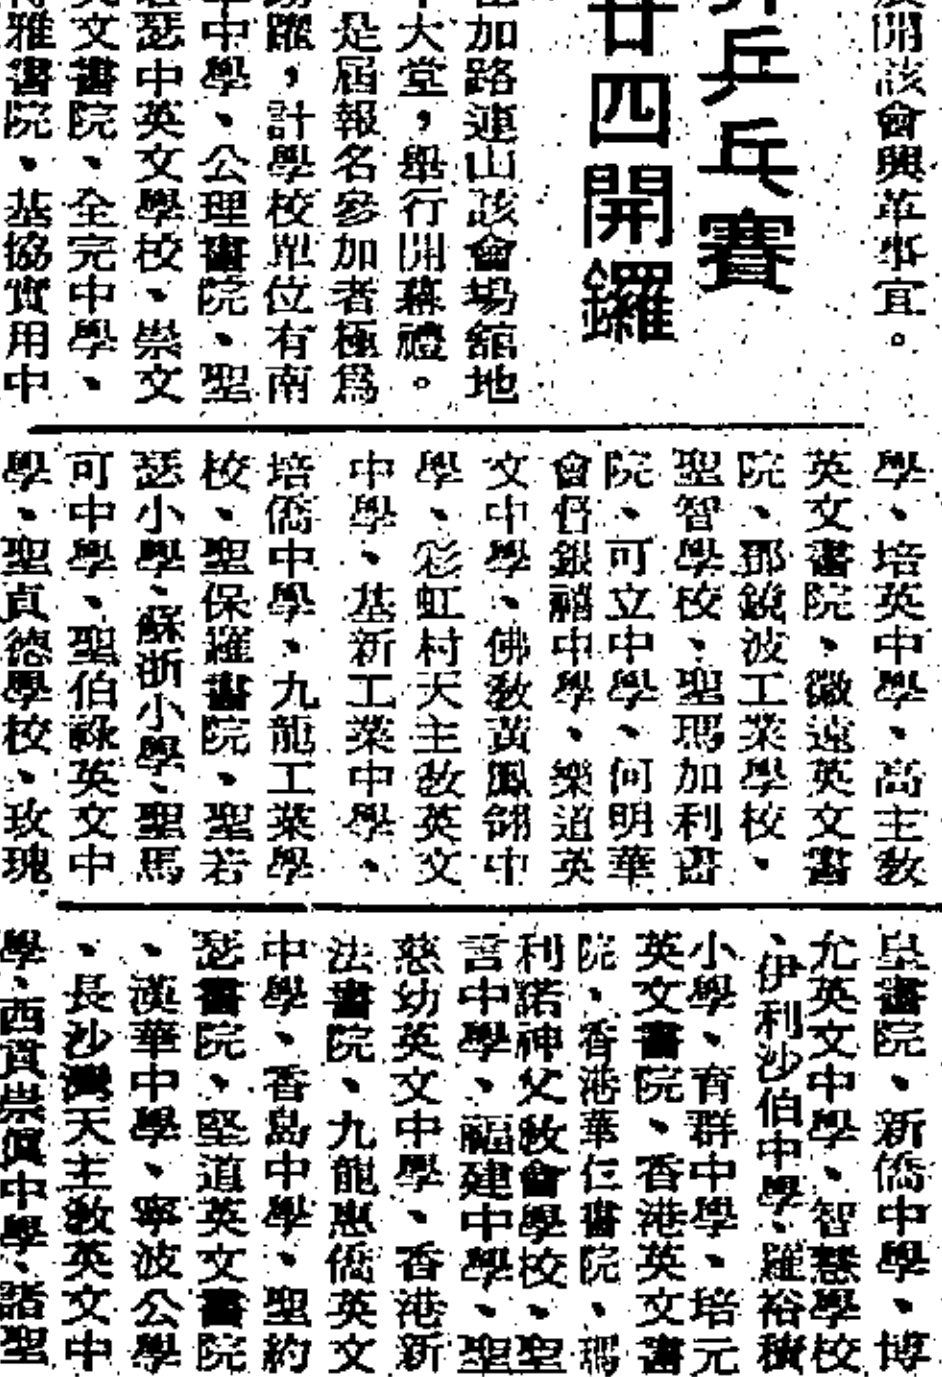 開該會興革事宜。
乒乓賽
廿四開鑼
加路連山該會場舘地
大堂，舉行開幕禮。
是屆報名參加者極爲
躍，計學校單位有南
中學、公理書院、聖
瑟中英文學校、崇文
文書院、全完中學、
雅書院、基協實用中
學、培英中學、高主教
英文書院、徽遠英文書
院、鄧鏡波工業學校、
聖智學校、聖瑪加利書
院、可立中學、何明華
會督銀禧中學、樂道英
文中學、佛教黃鳳翎中
學、彩虹村天主教英文
中學、基新工業中學、
培僑中學、九龍工業學
校、聖保羅書院、聖若
瑟小學、蘇浙小學、聖馬
可中學、聖伯祿英文中
學、聖貞德學校、玫瑰
皇書院、新僑中學、博
尤英文中學、智慧學校
、伊利沙伯中學、羅裕積
小學、育群中學、培元
英文書院、香港英文書
院、香港華仁書院、瑪
利諾神父教會學校、聖
言中學、福建中學、聖
慈幼英文中學、香港新
法書院、九龍惠僑英文
中學、香島中學、聖約
瑟書院、堅道英文書院
、漢華中學、寧波公學
、長沙灣天主教英文中
學、西貢崇眞中學、諸聖